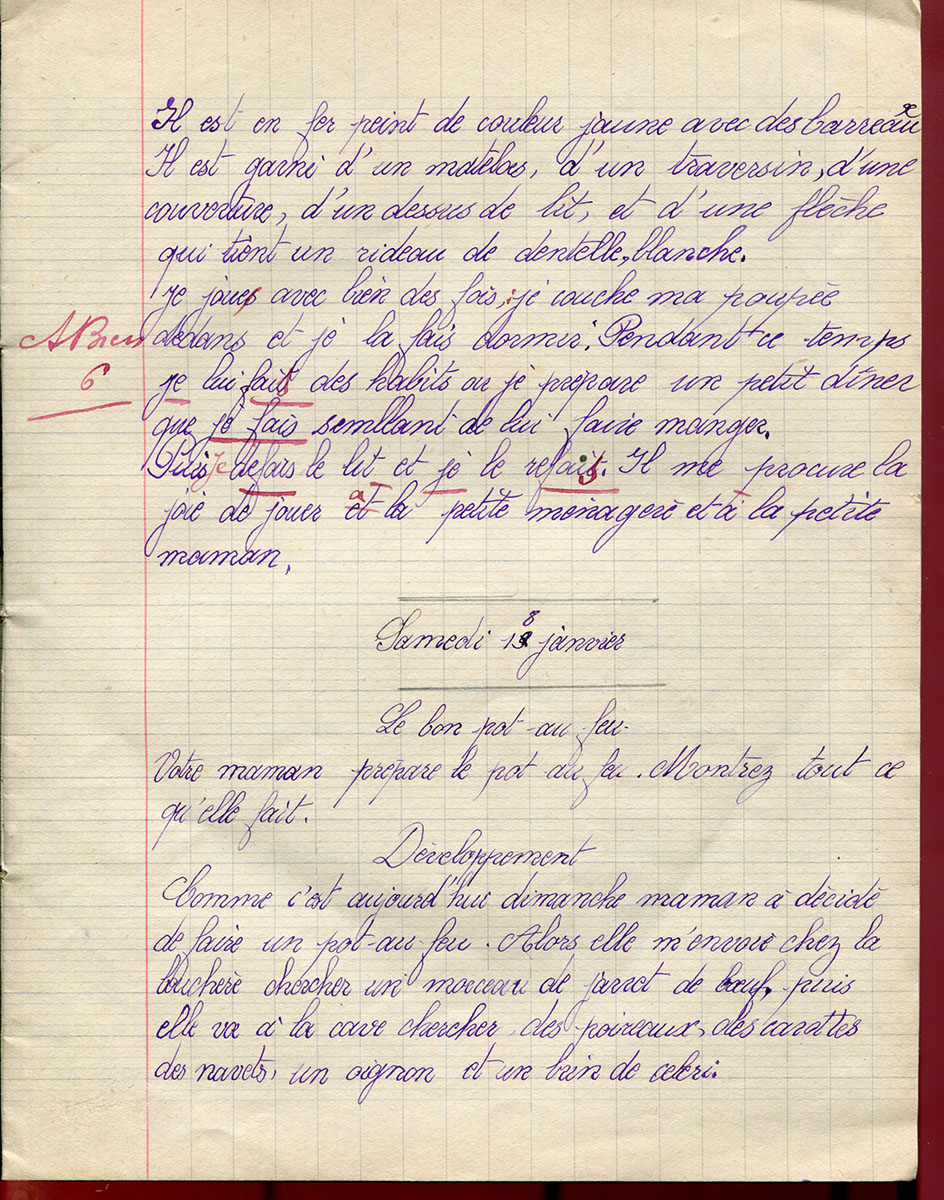 Il est en fer peint de couleur jaune avec des barreaux
Il est garni d'un matelas, d'un traversin, d'une
couverture, d'un dessus de lit, et d'une flèche
qui tient un rideau de dentelle, blanche.
Je joue avec bien des fois; je couche ma poupée
dedans et je la fais dormir. Pendant ce temps
A Bien
6
je lui fais des habits ou je prépare un petit dîner
que je fais semblant de lui faire manger.
Puis je défais le lit et je le refais. Il me procure la
joie de jouer à la petite ménagère et à la petite
maman.
Samedi 18 janvier
Le bon pot-au feu.
Votre maman prépare le pot au feu. Montrez tout ce
qu'elle fait.
Développement
Comme c'est aujourd'hui dimanche maman à décidé
de faire un pot-au feu. Alors elle m'envoie chez la
bouchère chercher un morceau de jarret de bœuf, puis
elle va à la cave chercher, des poireaux, des carottes
des navets, un oignon et un brin de céleri.